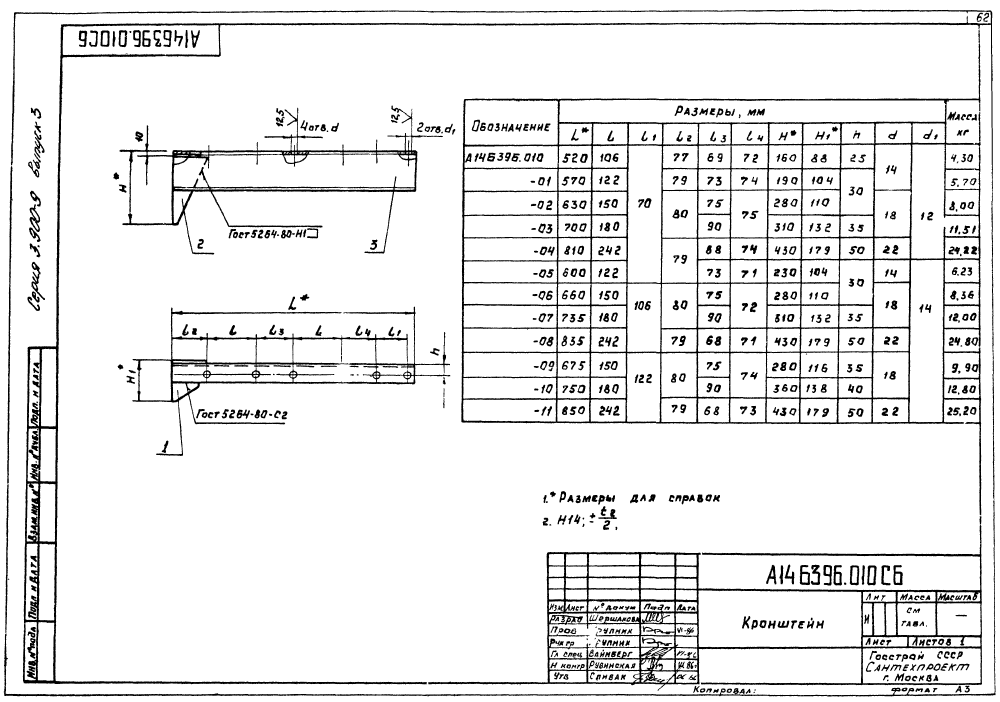 62
А14Б396.010СБ
Серия 3.900-9 выпуск 3
10
H*
12,5
4 отв. d
12,5
2 отв. d1
Гост 5264-80-Н1
2
3
L*
l2 l l3 l l4 l1
h
H1*
Гост 5264-80-С2
1
Обозначение Размеры, мм Масса кг
L* l l1 l2 l3 l4 H* H1* h d d1
А14Б396.010 520 106 70 77 69 72 160 88 25 14 12 4,30
-01 570 122 79 73 74 190 104 30 5,70
-02 630 150 80 75 75 280 110 18 8,00
-03 700 180 90 310 132 35 11,51
-04 810 242 79 88 74 430 179 50 22 24,22
-05 600 122 73 71 230 104 30 14 14 6.23
-06 660 150 106 80 75 72 280 110 18 8,36
-07 735 180 90 310 132 35 12,00
-08 835 242 79 68 71 430 179 50 22 24,80
-09 675 150 122 80 75 74 280 116 35 18 9,90
-10 750 180 90 360 138 40 12,80
-11 850 242 79 68 73 430 179 50 22 25,20
1.* Размеры для справок
2. Н14; ± t2/2,
Инв.№подл Подп. и дата Взам.инв.№ Инв.№дубл. Подп. и дата
А14Б396.010СБ
Изм Лист № докум Подп Дата
Разраб Шершакова
Пров Рупник VI-86
Рук гр Рупник
Гл спец Вайнберг
Н контр Рубинская
Утв Спивак
Кронштейн
Лит Масса Масштаб
И см табл. —
Лист Листов 1
Госстрой СССР
Сантехпроект
г. Москва
Копировал:
формат А3